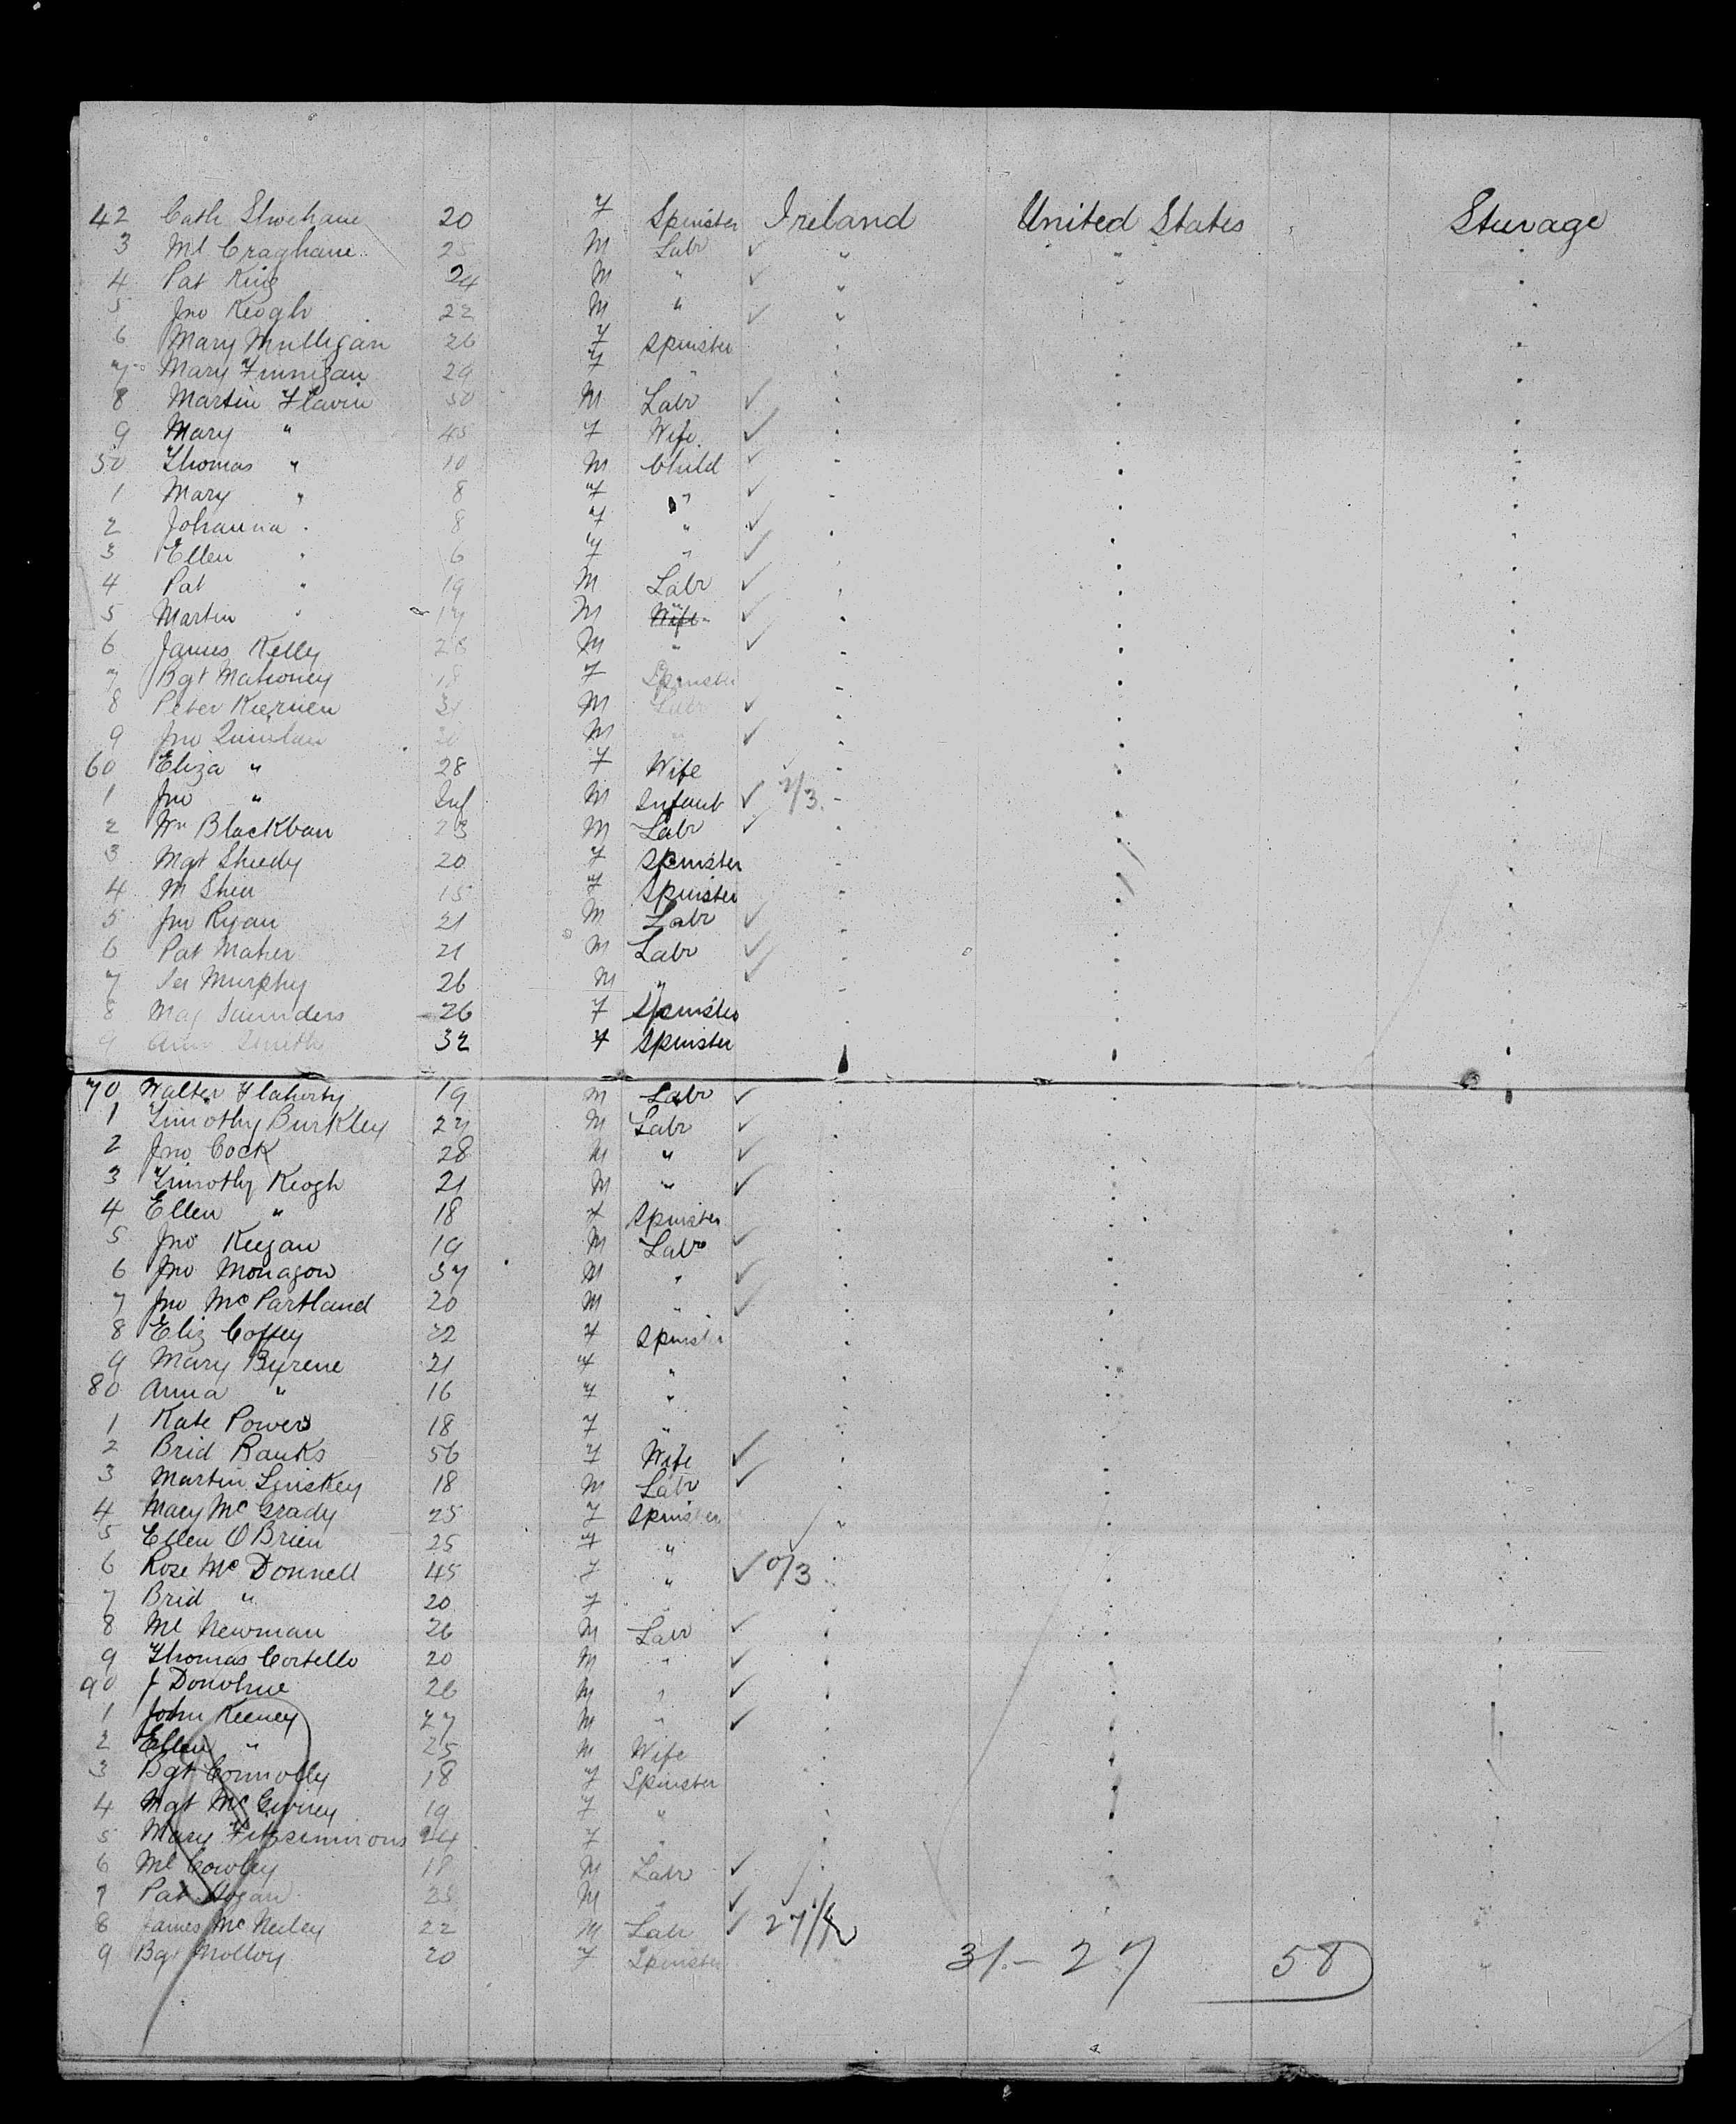 42 Cath Shechane 20 F Spinster Ireland United States Steerage
3 Ml Craghane 25 M Labr ✓ " " "
4 Pat King 24 M " ✓ " " "
5 Jno Keogh 22 M " ✓ " " "
6 Mary Mulligan 26 F Spinster " " "
7 Mary Finnigan 29 F " " " "
8 Martin Flavin 50 M Labr ✓ " " "
9 Mary " 45 F Wife ✓ " " "
50 Thomas " 10 M Child ✓ " " "
1 Mary " 8 F " ✓ " " "
2 Johanna " 8 F " ✓ " " "
3 Ellen " 6 F " ✓ " " "
4 Pat " 19 M Labr ✓ " " "
5 Martin " 17 M " ✓ " " "
6 James Kelly 28 M " ✓ " " "
7 Bgt Mahoney 18 F Spinster " " "
8 Peter Kiernen 31 M Labr ✓ " " "
9 Jno Quinlan M " ✓ " " "
60 Eliza " 28 F Wife " " "
1 Jno " Inf M Infant ✓ " " "
2 Wm Blackban 23 M Labr ✓ " " "
3 Mgt Sheedy 20 F Spinster " " "
4 M Shea 15 F Spinster " " "
5 Jno Ryan 21 M Labr ✓ " " "
6 Pat Maher 21 M Labr ✓ " " "
7 Murphy 26 M " ✓ " " "
8 Mag Saunders 26 F Spinster " " "
9 Ann Smith 32 F Spinster " " "
70 Walter Flaherty 19 M Labr ✓ " " "
1 Timothy Burkley 27 M Labr ✓ " " "
2 Jno Cock 28 M " ✓ " " "
3 Timothy Keogh 21 M " ✓ " " "
4 Ellen " 18 F Spinster " " "
5 Jno Keegan 19 M Labr ✓ " " "
6 Jno Monagon 37 M " ✓ " " "
7 Jno McPartland 20 M " ✓ " " "
8 Eliz Coffey 22 F Spinster " " "
9 Mary Byrene 21 F " " " "
80 Anna " 16 F " " " "
1 Kate Powers 18 F " " " "
2 Brid Ranks 56 F Wife ✓ " " "
3 Martin Linskey 18 M Labr ✓ " " "
4 Mary McGrady 25 F Spinster " " "
5 Ellen O Brien 25 F " " " "
6 Rose McDonnell 45 F " ✓ 0/3 " " "
7 Brid " 20 F " " " "
8 Ml Newman 26 M Labr ✓ " " "
9 Thomas Costello 20 M " ✓ " " "
90 J Donohue 26 M " ✓ " " "
1 John Keeney 27 M " ✓ " " "
2 Ellen " 25 M Wife " " "
3 Bgt Connolly 18 F Spinster " " "
4 Mgt McGivney 19 F " " " "
5 Mary Fitzsimmons 24 F " " " "
6 Ml Cowley 18 M Labr ✓ " " "
7 Pat Hogan 25 M " ✓ " " "
8 James McNeeley 22 M Labr ✓ " "
9 Bgt Molloy 20 F Spinster "
31 - 27 58